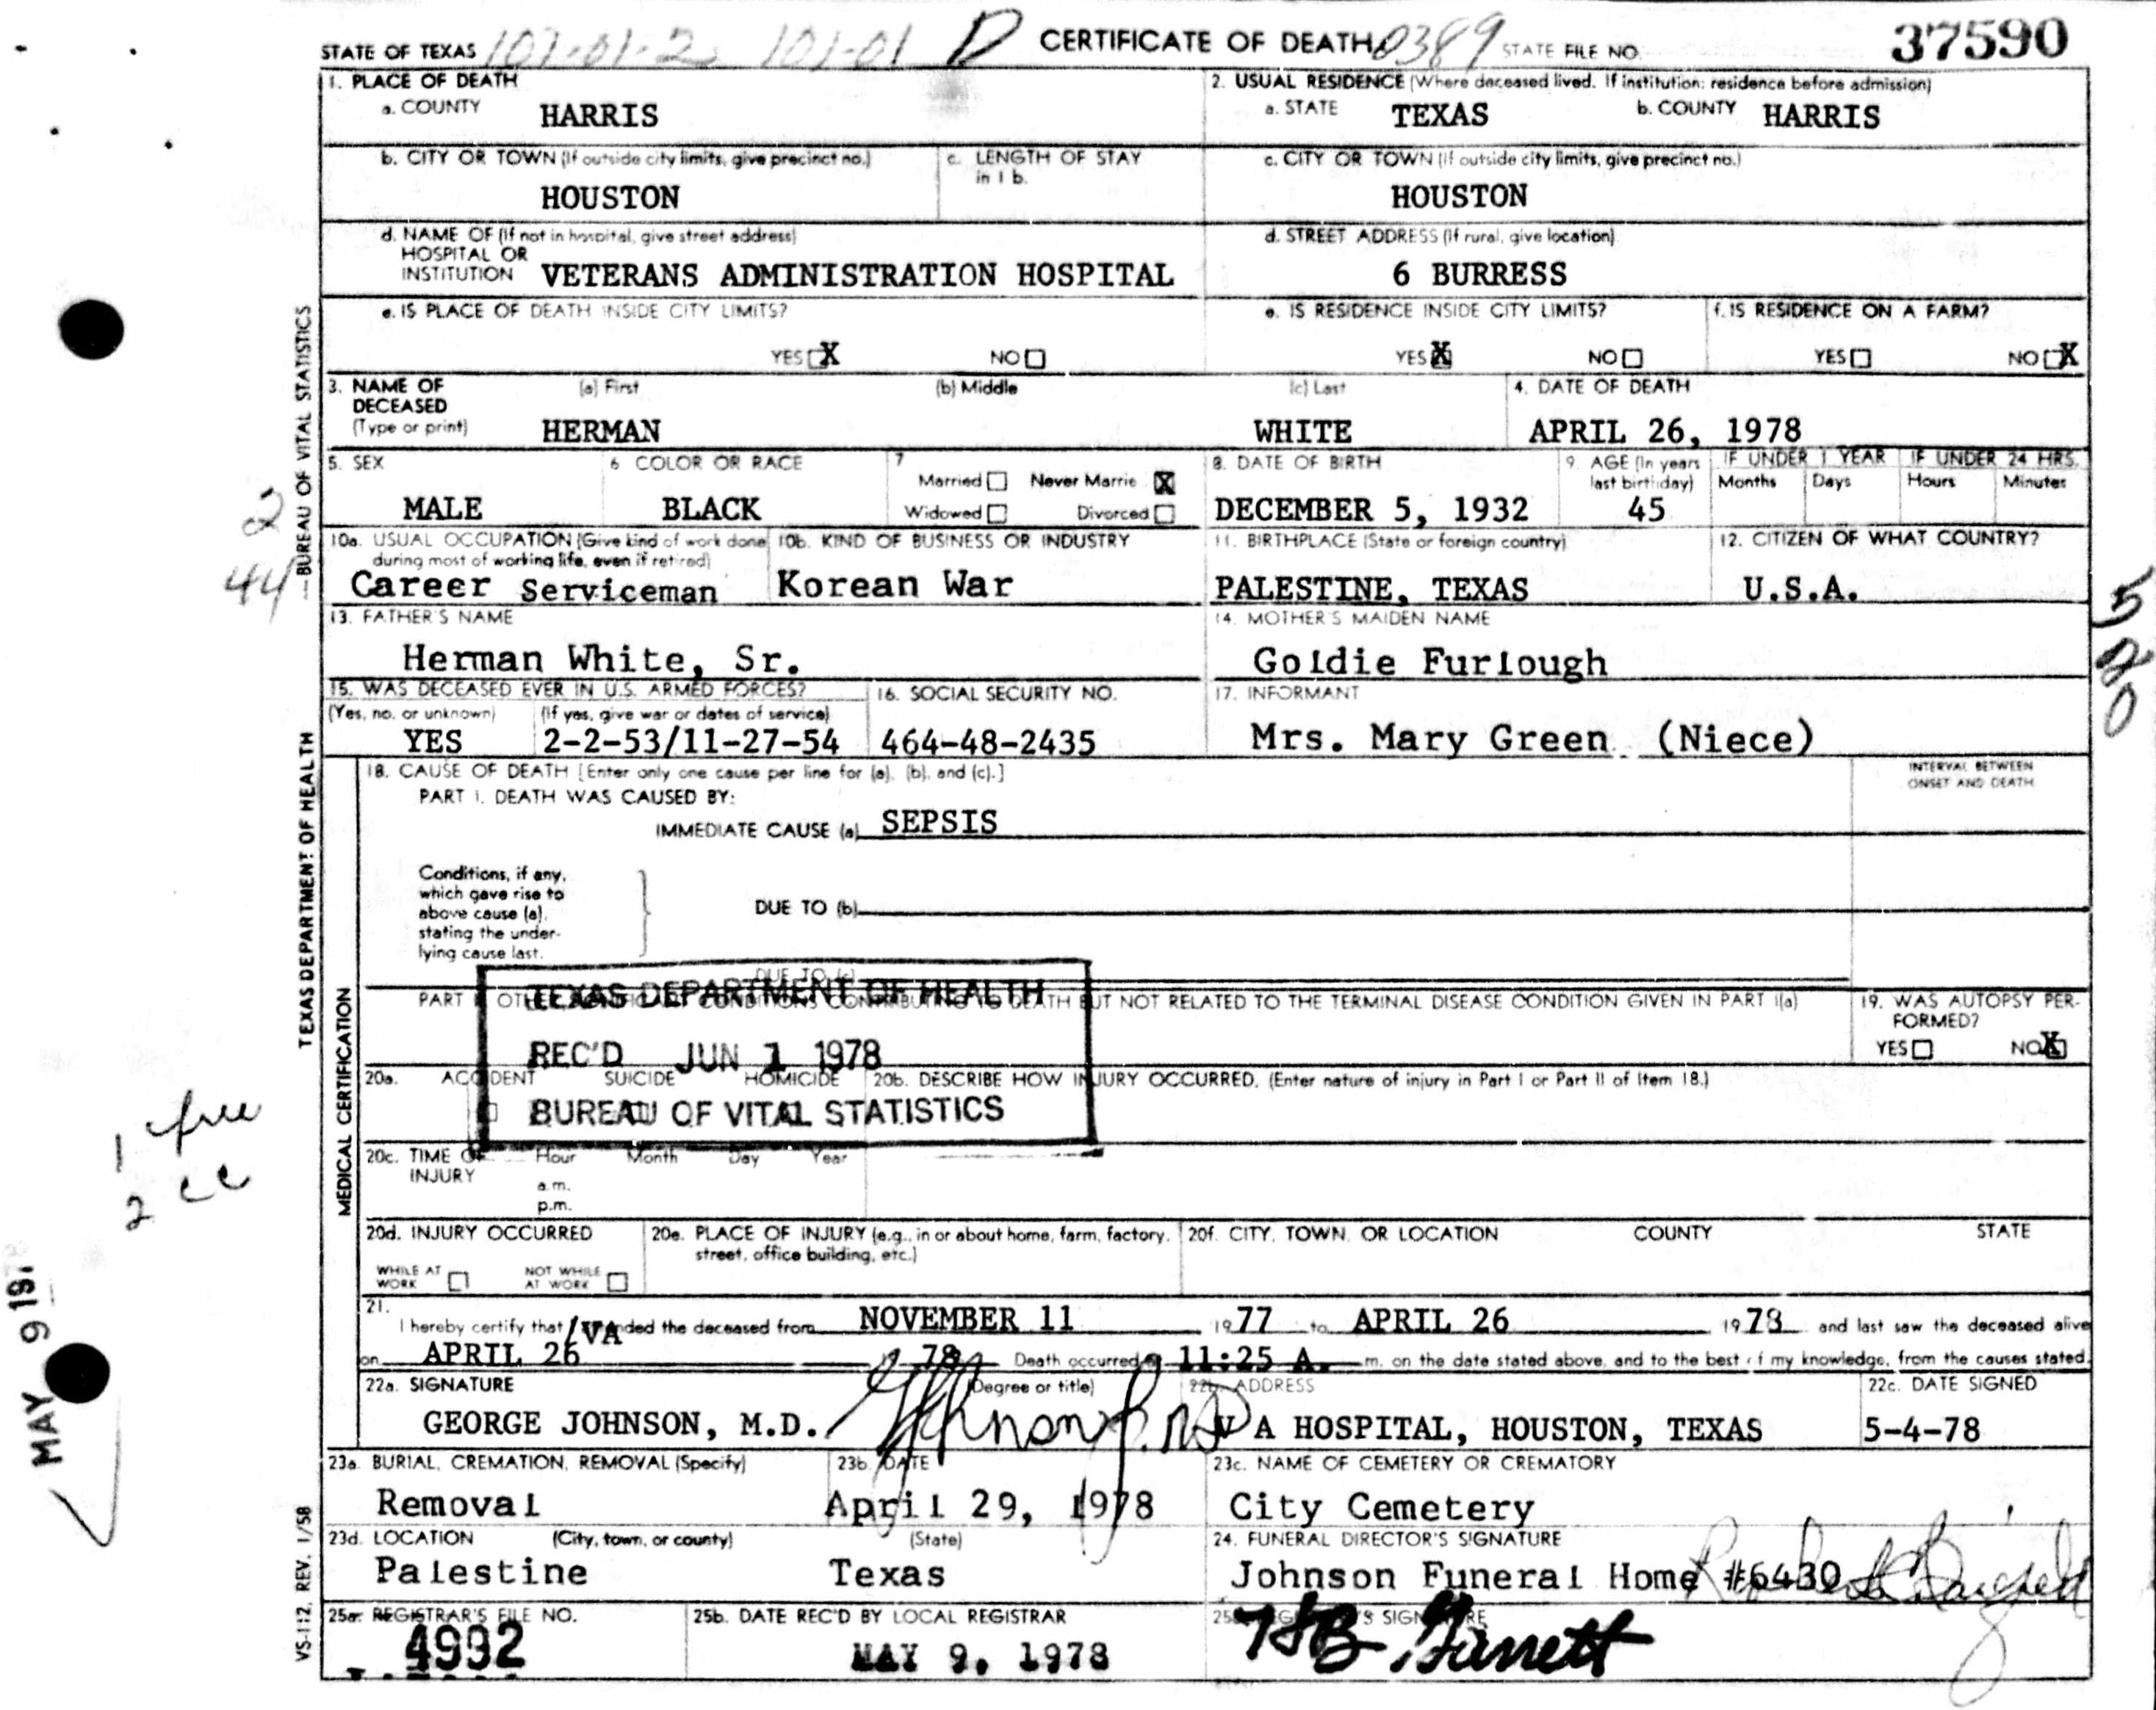 STATE OF TEXAS 101-01-2 101-01 D CERTIFICATE OF DEATH 0389 STATE FILE NO. 37590
1. PLACE OF DEATH
a. COUNTY HARRIS
2. USUAL RESIDENCE (Where deceased lived. If institution: residence before admission)
a. STATE TEXAS b. COUNTY HARRIS
b. CITY OR TOWN (If outside city limits, give precinct no.) HOUSTON
c. LENGTH OF STAY in 1 b.
c. CITY OR TOWN (If outside city limits, give precinct no.) HOUSTON
d. NAME OF (If not in hospital, give street address)
HOSPITAL OR
INSTITUTION VETERANS ADMINISTRATION HOSPITAL
d. STREET ADDRESS (If rural, give location)
6 BURRESS
e. IS PLACE OF DEATH INSIDE CITY LIMITS?
YES X NO
e. IS RESIDENCE INSIDE CITY LIMITS?
YES X NO
f. IS RESIDENCE ON A FARM?
YES NO X
3. NAME OF DECEASED (Type or print)
(a) First (b) Middle (c) Last
HERMAN WHITE
4. DATE OF DEATH
APRIL 26, 1978
5. SEX
MALE
6 COLOR OR RACE
BLACK
7 Married Never Marrie X
Widowed Divorced
8. DATE OF BIRTH
DECEMBER 5, 1932
9. AGE (In years last birthday)
45
IF UNDER 1 YEAR IF UNDER 24 HRS.
Months Days Hours Minutes
10a. USUAL OCCUPATION (Give kind of work done during most of working life, even if retired)
Career Serviceman
10b. KIND OF BUSINESS OR INDUSTRY
Korean War
11. BIRTHPLACE (State or foreign country)
PALESTINE, TEXAS
12. CITIZEN OF WHAT COUNTRY?
U.S.A.
13. FATHER'S NAME
Herman White, Sr.
14. MOTHER'S MAIDEN NAME
Goldie Furlough
15. WAS DECEASED EVER IN U.S. ARMED FORCES?
(Yes, no. or unknown) (If yes, give war or dates of service)
YES 2-2-53/11-27-54
16. SOCIAL SECURITY NO.
464-48-2435
17. INFORMANT
Mrs. Mary Green (Niece)
18. CAUSE OF DEATH [Enter only one cause per line for (a), (b), and (c).]
INTERVAL BETWEEN ONSET AND DEATH
PART I. DEATH WAS CAUSED BY:
IMMEDIATE CAUSE (a) SEPSIS
Conditions, if any,
which gave rise to
above cause (a),
stating the under-
lying cause last.
DUE TO (b)
DUE TO (c)
PART II OTHER SIGNIFICANT CONDITIONS CONTRIBUTING TO DEATH BUT NOT RELATED TO THE TERMINAL DISEASE CONDITION GIVEN IN PART I(a)
TEXAS DEPARTMENT OF HEALTH
REC'D JUN 1 1978
BUREAU OF VITAL STATISTICS
19. WAS AUTOPSY PER-
FORMED?
YES NO X
20a. ACCIDENT SUICIDE HOMICIDE
20b. DESCRIBE HOW INJURY OCCURRED. (Enter nature of injury in Part I or Part II of Item 18.)
20c. TIME OF INJURY Hour Month Day Year
a.m.
p.m.
20d. INJURY OCCURRED
WHILE AT WORK NOT WHILE AT WORK
20e. PLACE OF INJURY (e.g., in or about home, farm, factory, street, office building, etc.)
20f. CITY, TOWN, OR LOCATION COUNTY STATE
21.
I hereby certify that /VA attended the deceased from NOVEMBER 11 1977 to APRIL 26 1978 and last saw the deceased alive
on APRIL 26 1978 Death occurred at 11:25 A. m. on the date stated above, and to the best of my knowledge, from the causes stated.
22a. SIGNATURE (Degree or title)
GEORGE JOHNSON, M.D. GJohnson Jr. MD
22b. ADDRESS
V A HOSPITAL, HOUSTON, TEXAS
22c. DATE SIGNED
5-4-78
23a. BURIAL, CREMATION, REMOVAL (Specify)
Removal
23b. DATE
April 29, 1978
23c. NAME OF CEMETERY OR CREMATORY
City Cemetery
23d. LOCATION (City, town, or county) (State)
Palestine Texas
24. FUNERAL DIRECTOR'S SIGNATURE
Johnson Funeral Home #6430
25a. REGISTRAR'S FILE NO.
4992
25b. DATE REC'D BY LOCAL REGISTRAR
MAY 9, 1978
25c. REGISTRAR'S SIGNATURE
HB Garrett
TEXAS DEPARTMENT OF HEALTH —BUREAU OF VITAL STATISTICS
MEDICAL CERTIFICATION
VS-112, REV. 1/58
2
44
1 free
2 cc
MAY 9 197
5
2
0